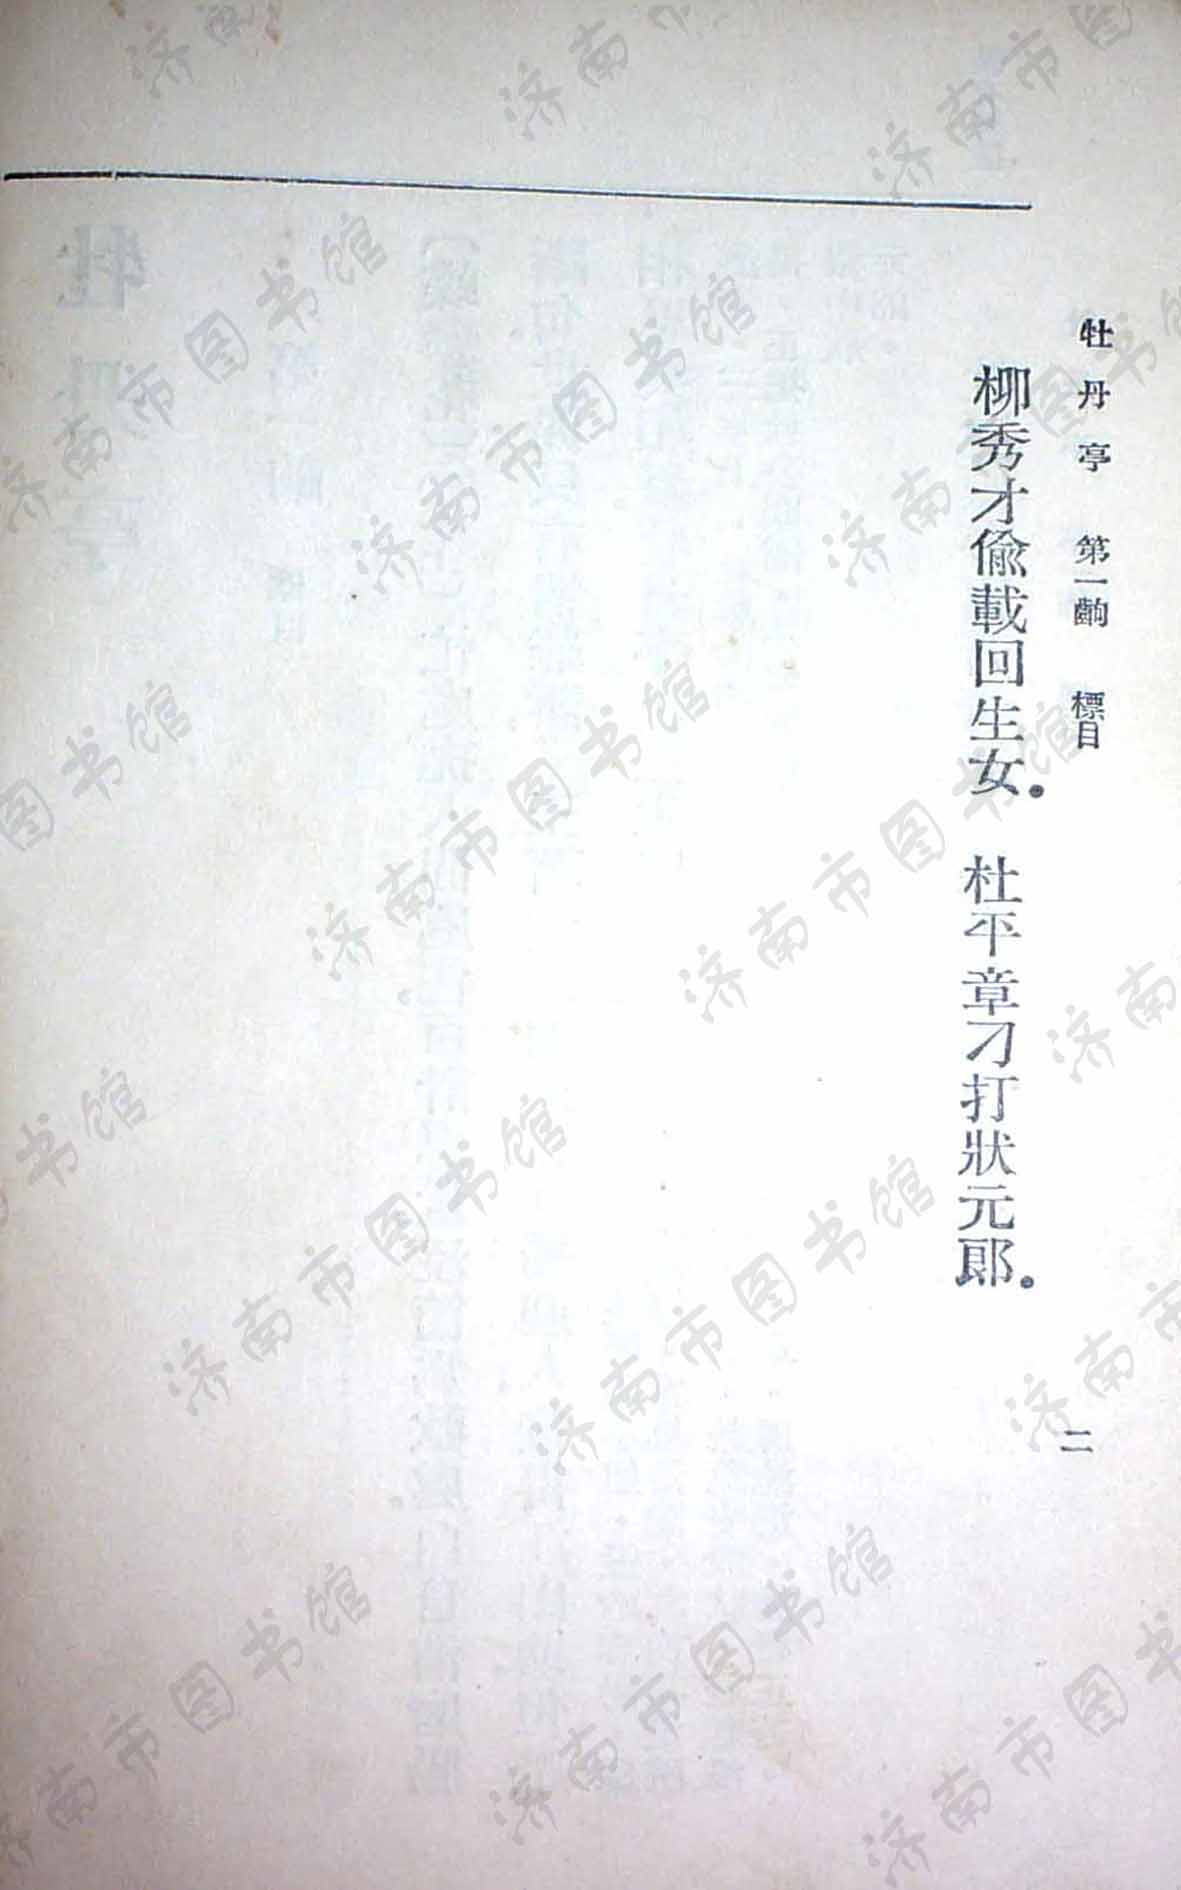 牡丹亭 第一齣 標目
柳秀才偷載回生女。 杜平章刁打狀元郎。
二
济南市图书馆